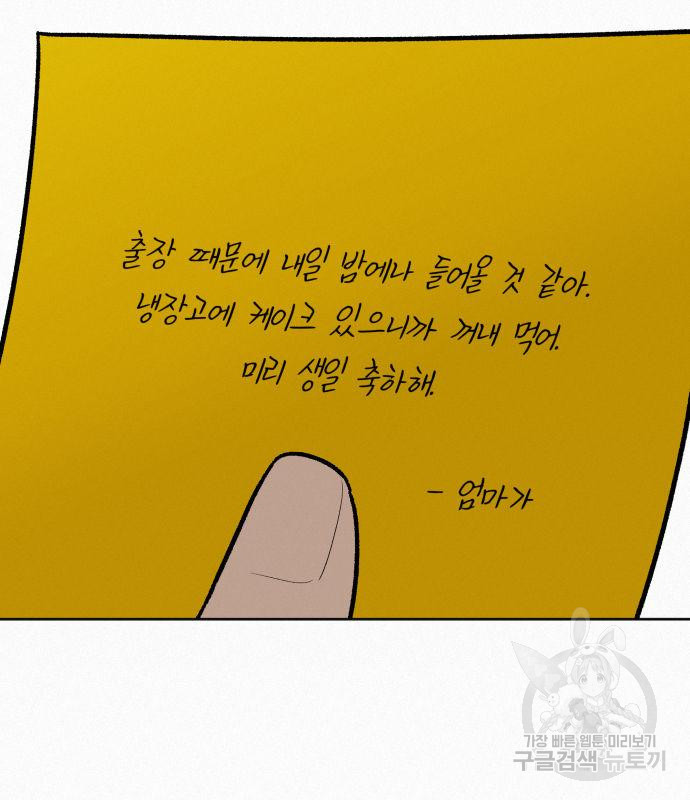 출장 때문에 내일 밤에나 들어올 것 같아.
냉장고에 케이크 있으니까 꺼내 먹어.
미리 생일 축하해.
- 엄마가
가장 빠른 웹툰 미리보기
구글검색 뉴토끼